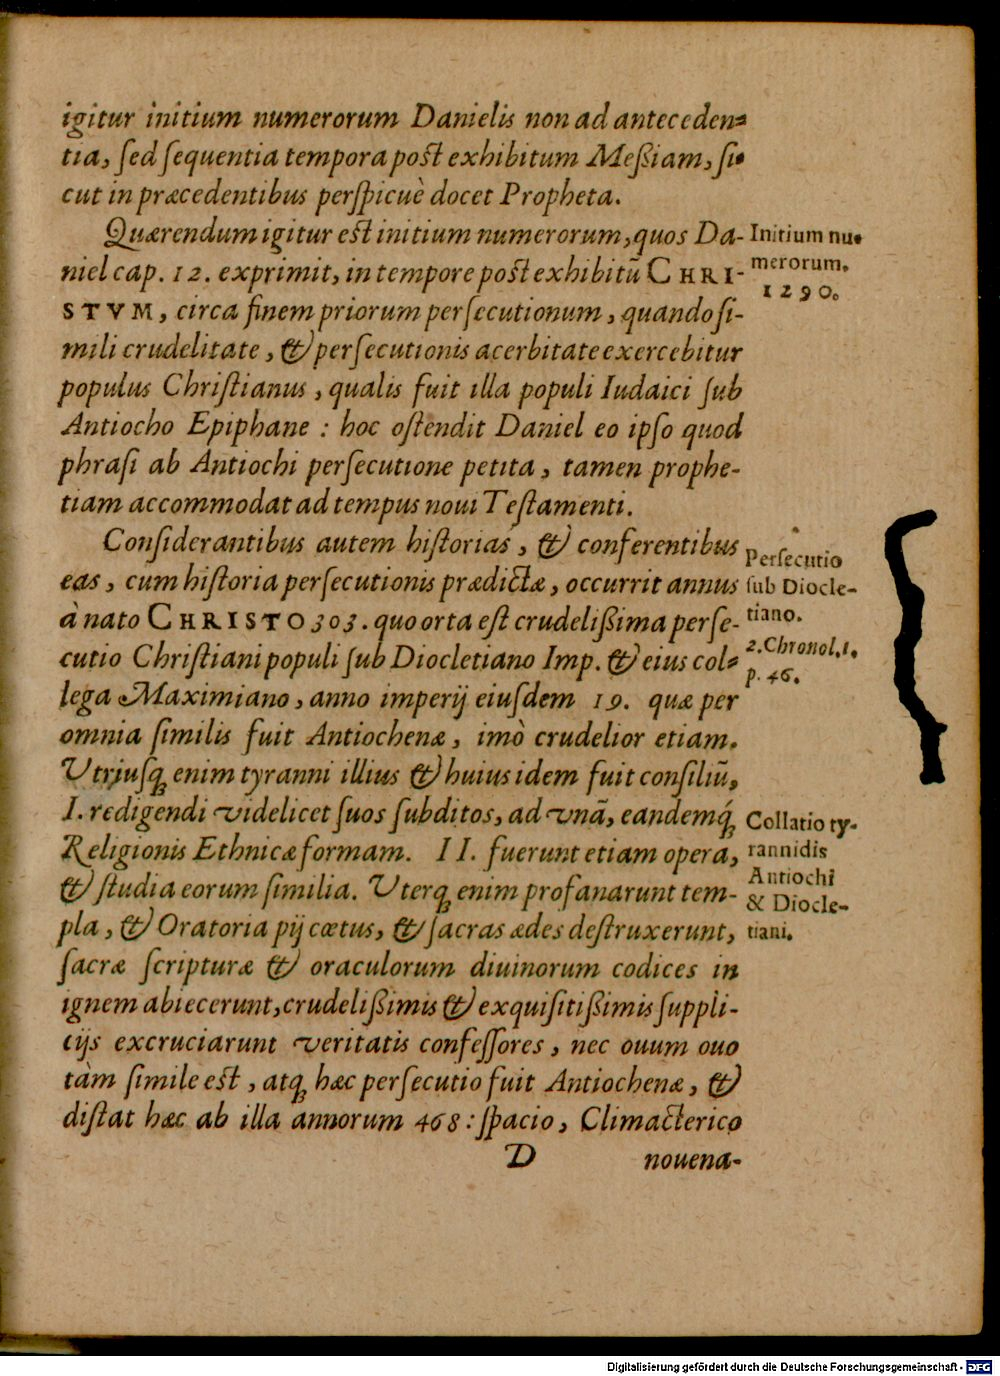 igitur initium numerorum Danielis non ad anteceden⸗
tia, ſed ſequentia tempora poſt exhibitum Meßiam, ſi⸗
cut in præcedentibus perſpicuè docet Propheta.
Quærendum igitur eſt initium numerorum, quos Da-
niel cap. 12. exprimit, in tempore poſt exhibitũ CHRI-
STVM, circa finem priorum perſecutionum, quando ſi-
mili crudelitate, & perſecutionis acerbitate exercebitur
populus Chriſtianus, qualis fuit illa populi Iudaici ſub
Antiocho Epiphane : hoc oſtendit Daniel eo ipſo quod
phraſi ab Antiochi perſecutione petita, tamen prophe-
tiam accommodat ad tempus noui Teſtamenti.
Initium nu⸗
merorum.
1290.
Conſiderantibus autem hiſtorias, & conferentibus
eas, cum hiſtoria perſecutionis prædictæ, occurrit annus
à nato CHRISTO 303. quo orta eſt crudelißima perſe-
cutio Chriſtiani populi ſub Diocletiano Imp. & eius col⸗
lega Maximiano, anno imperij eiuſdem 19. quæ per
omnia ſimilis fuit Antiochenæ, imò crudelior etiam.
Vtriuſq́ enim tyranni illius & huius idem fuit conſiliũ,
I. redigendi videlicet ſuos ſubditos, ad vnã, eandemq́
Religionis Ethnicæ formam. II. fuerunt etiam opera,
& ſtudia eorum ſimilia. Vterq́ enim profanarunt tem-
pla, & Oratoria pij cœtus, & ſacras ædes deſtruxerunt,
ſacræ ſcripturæ & oraculorum diuinorum codices in
ignem abiecerunt, crudelißimis & exquiſitißimis ſuppli-
cijs excruciarunt veritatis confeſſores, nec ouum ouo
tàm ſimile eſt, atq́ hæc perſecutio fuit Antiochenæ, &
diſtat hæc ab illa annorum 468 : ſpacio, Climacterico
Perſecutio
ſub Diocle-
tiano.
2. Chronol. 1.
p. 46.
Collatio ty-
rannidis
Antiochi
& Diocle-
tiani.
D nouena-
Digitalisierung gefördert durch die Deutsche Forschungsgemeinschaft - DFG